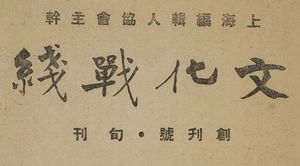 上海編輯人協會主幹
文化戰綫
創刊號·旬刊